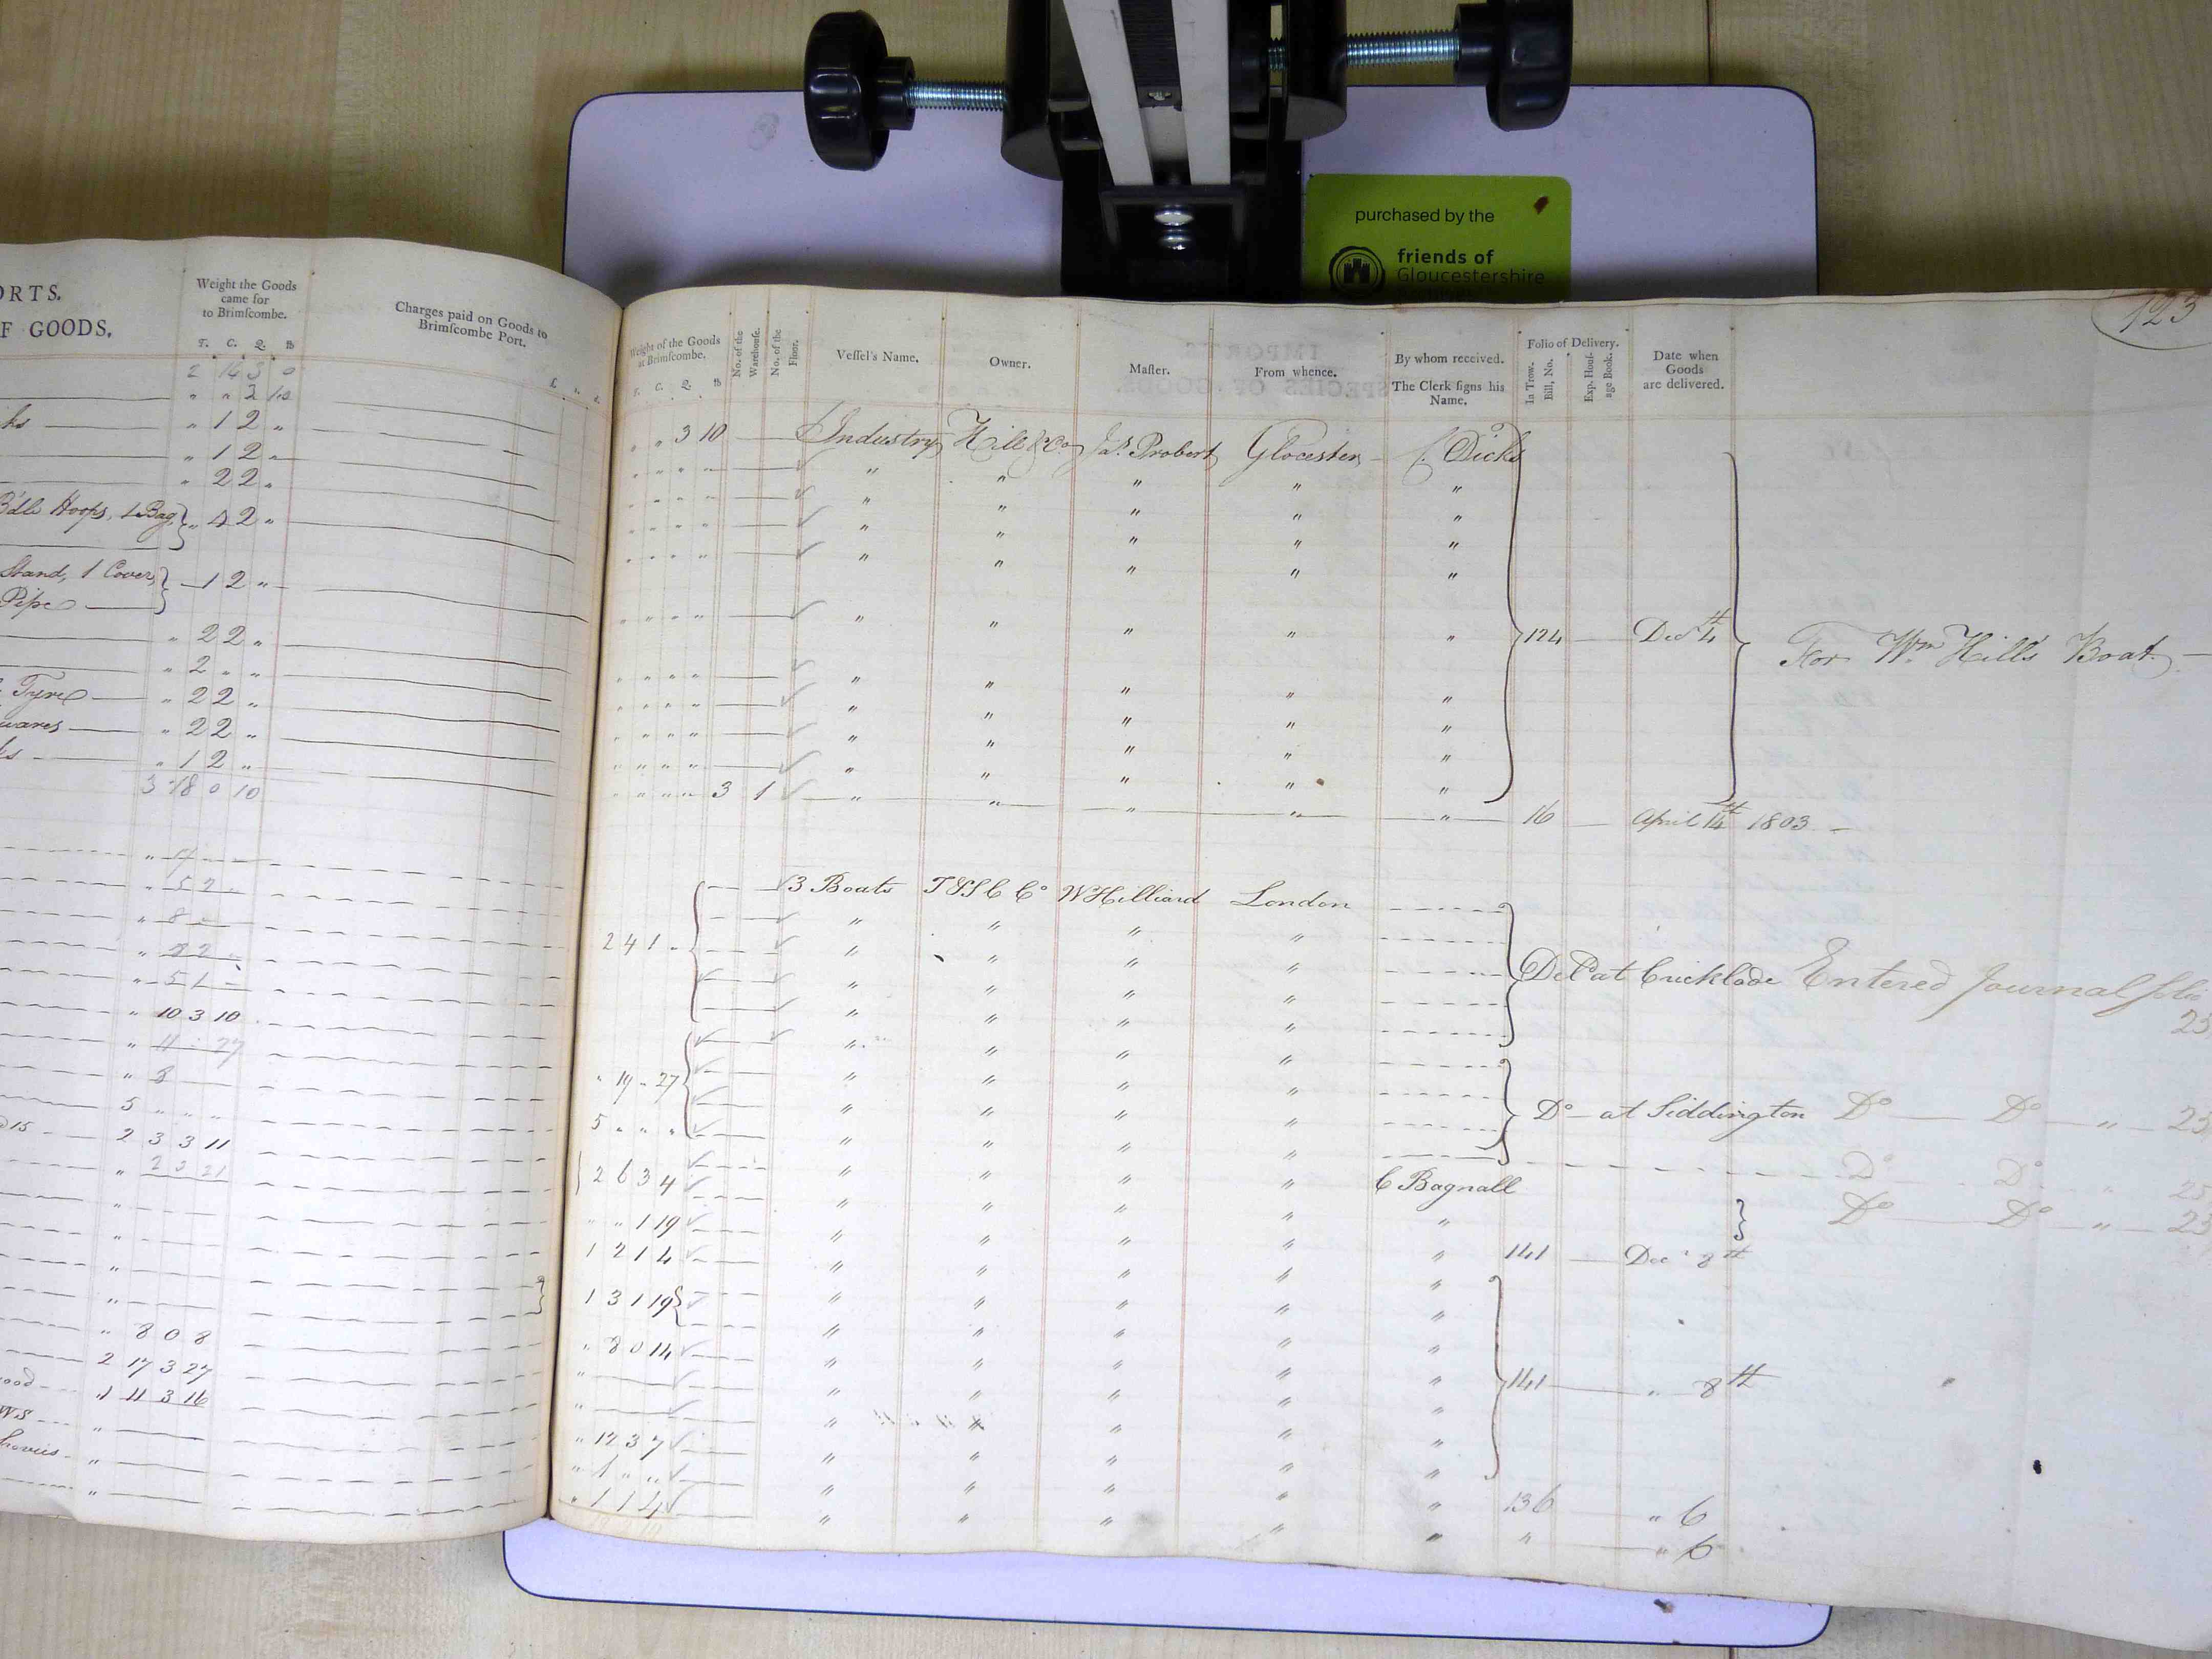 purchased by the
friends of
Gloucestershire
123
ORTS.
F GOODS.
Weight the Goods
came for
to Brimſcombe.
T. C. Q. lb
Charges paid on Goods to
Brimſcombe Port.
£. s. d.
" 1 2 "
" 1 2 "
" 2 2 "
B'dle Hoops, 1 Bag } " 4 2 "
Stand, 1 Cover } 1 2 "
Pipe
" 2 2 "
" 2 " "
Tyre " 2 2 "
wares " 2 2 "
" 1 2 "
3 18 0 10
" 5 2 "
" 8
" 5 1
" 10 3 10
" 11 27
" 8
5 " " "
2 3 3 11
" 2 3 21
" 8 0 8
2 17 3 27
1 11 3 16
Weight of the Goods
at Brimſcombe.
T. C. Q. lb
No. of the
Warehouſe.
No. of the
Floor.
Veſſel's Name.
Owner.
Maſter.
From whence.
By whom received.
The Clerk ſigns his
Name.
Folio of Delivery.
In Trow.
Bill, No.
Exp. Houſ-
age Book.
Date when
Goods
are delivered.
" " 3 10 Industry Hill & Co Jas. Probert Glocester Dicks
" " " " "
" " " " "
" " " " "
" " " " "
" " " " " 124 Decr 4th For Wm Hill's Boat
" " " " "
" " " " "
" " " " "
" " " " "
3 1 " " " " " 16 April 14th 1803
3 Boats T&SC Co W Hilliard London
" " " "
2 4 1 " " " " " Deld at Cricklade Entered Journal folio
23
" " " "
" " " "
" " " "
" 19 " 27 " " " " Do at Siddington Do Do " 23
5 " " " " " " "
Do Do " 23
2 6 3 4 " " " " C Bagnall Do Do " 23
" " 1 19 " " " " "
1 2 1 4 " " " " " 141 Decr 8th
1 3 1 19 " " " " "
" 8 0 14 " " " " " 141 " 8th
" " " " "
" " " " "
" 12 3 7 " " " " "
" 1 " " " " " " " 136 " 6
" 1 1 4 " " " " " " " 6